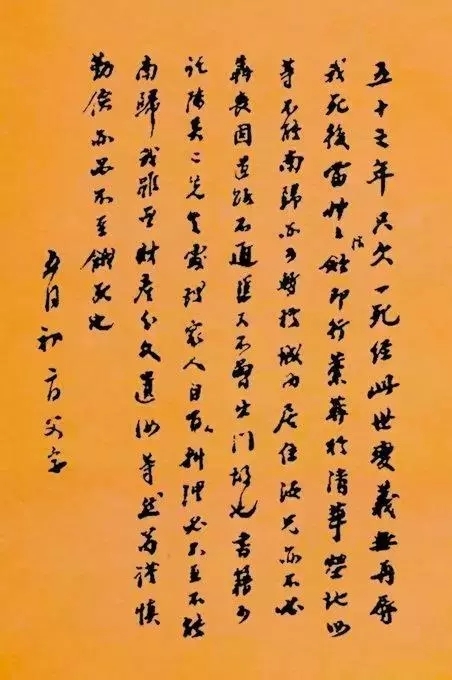 五十之年只欠一死經此世變義無再辱
我死後當草草棺斂即行藁葬於清華塋地汝
等不能南歸亦可暫於城内居住汝兄亦不必
奔喪因道路不通渠又不曾出門故也書籍可
託陳吳二先生處理家人自有人料理必不至不能
南歸我雖無財產分文遺汝等然苟謹慎
勤儉亦必不至餓死也
五月初二日父字